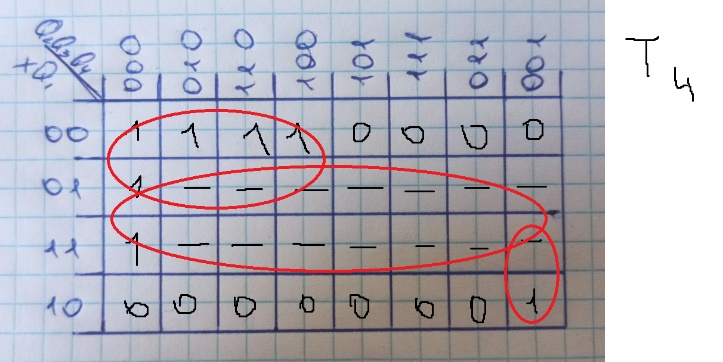 T₄
Q₂Q₃Q₄
xQ₁
000 010 110 100 101 111 011 001
00 1 1 1 1 0 0 0 0
01 1 — — — — — — —
11 1 — — — — — — —
10 0 0 0 0 0 0 0 1